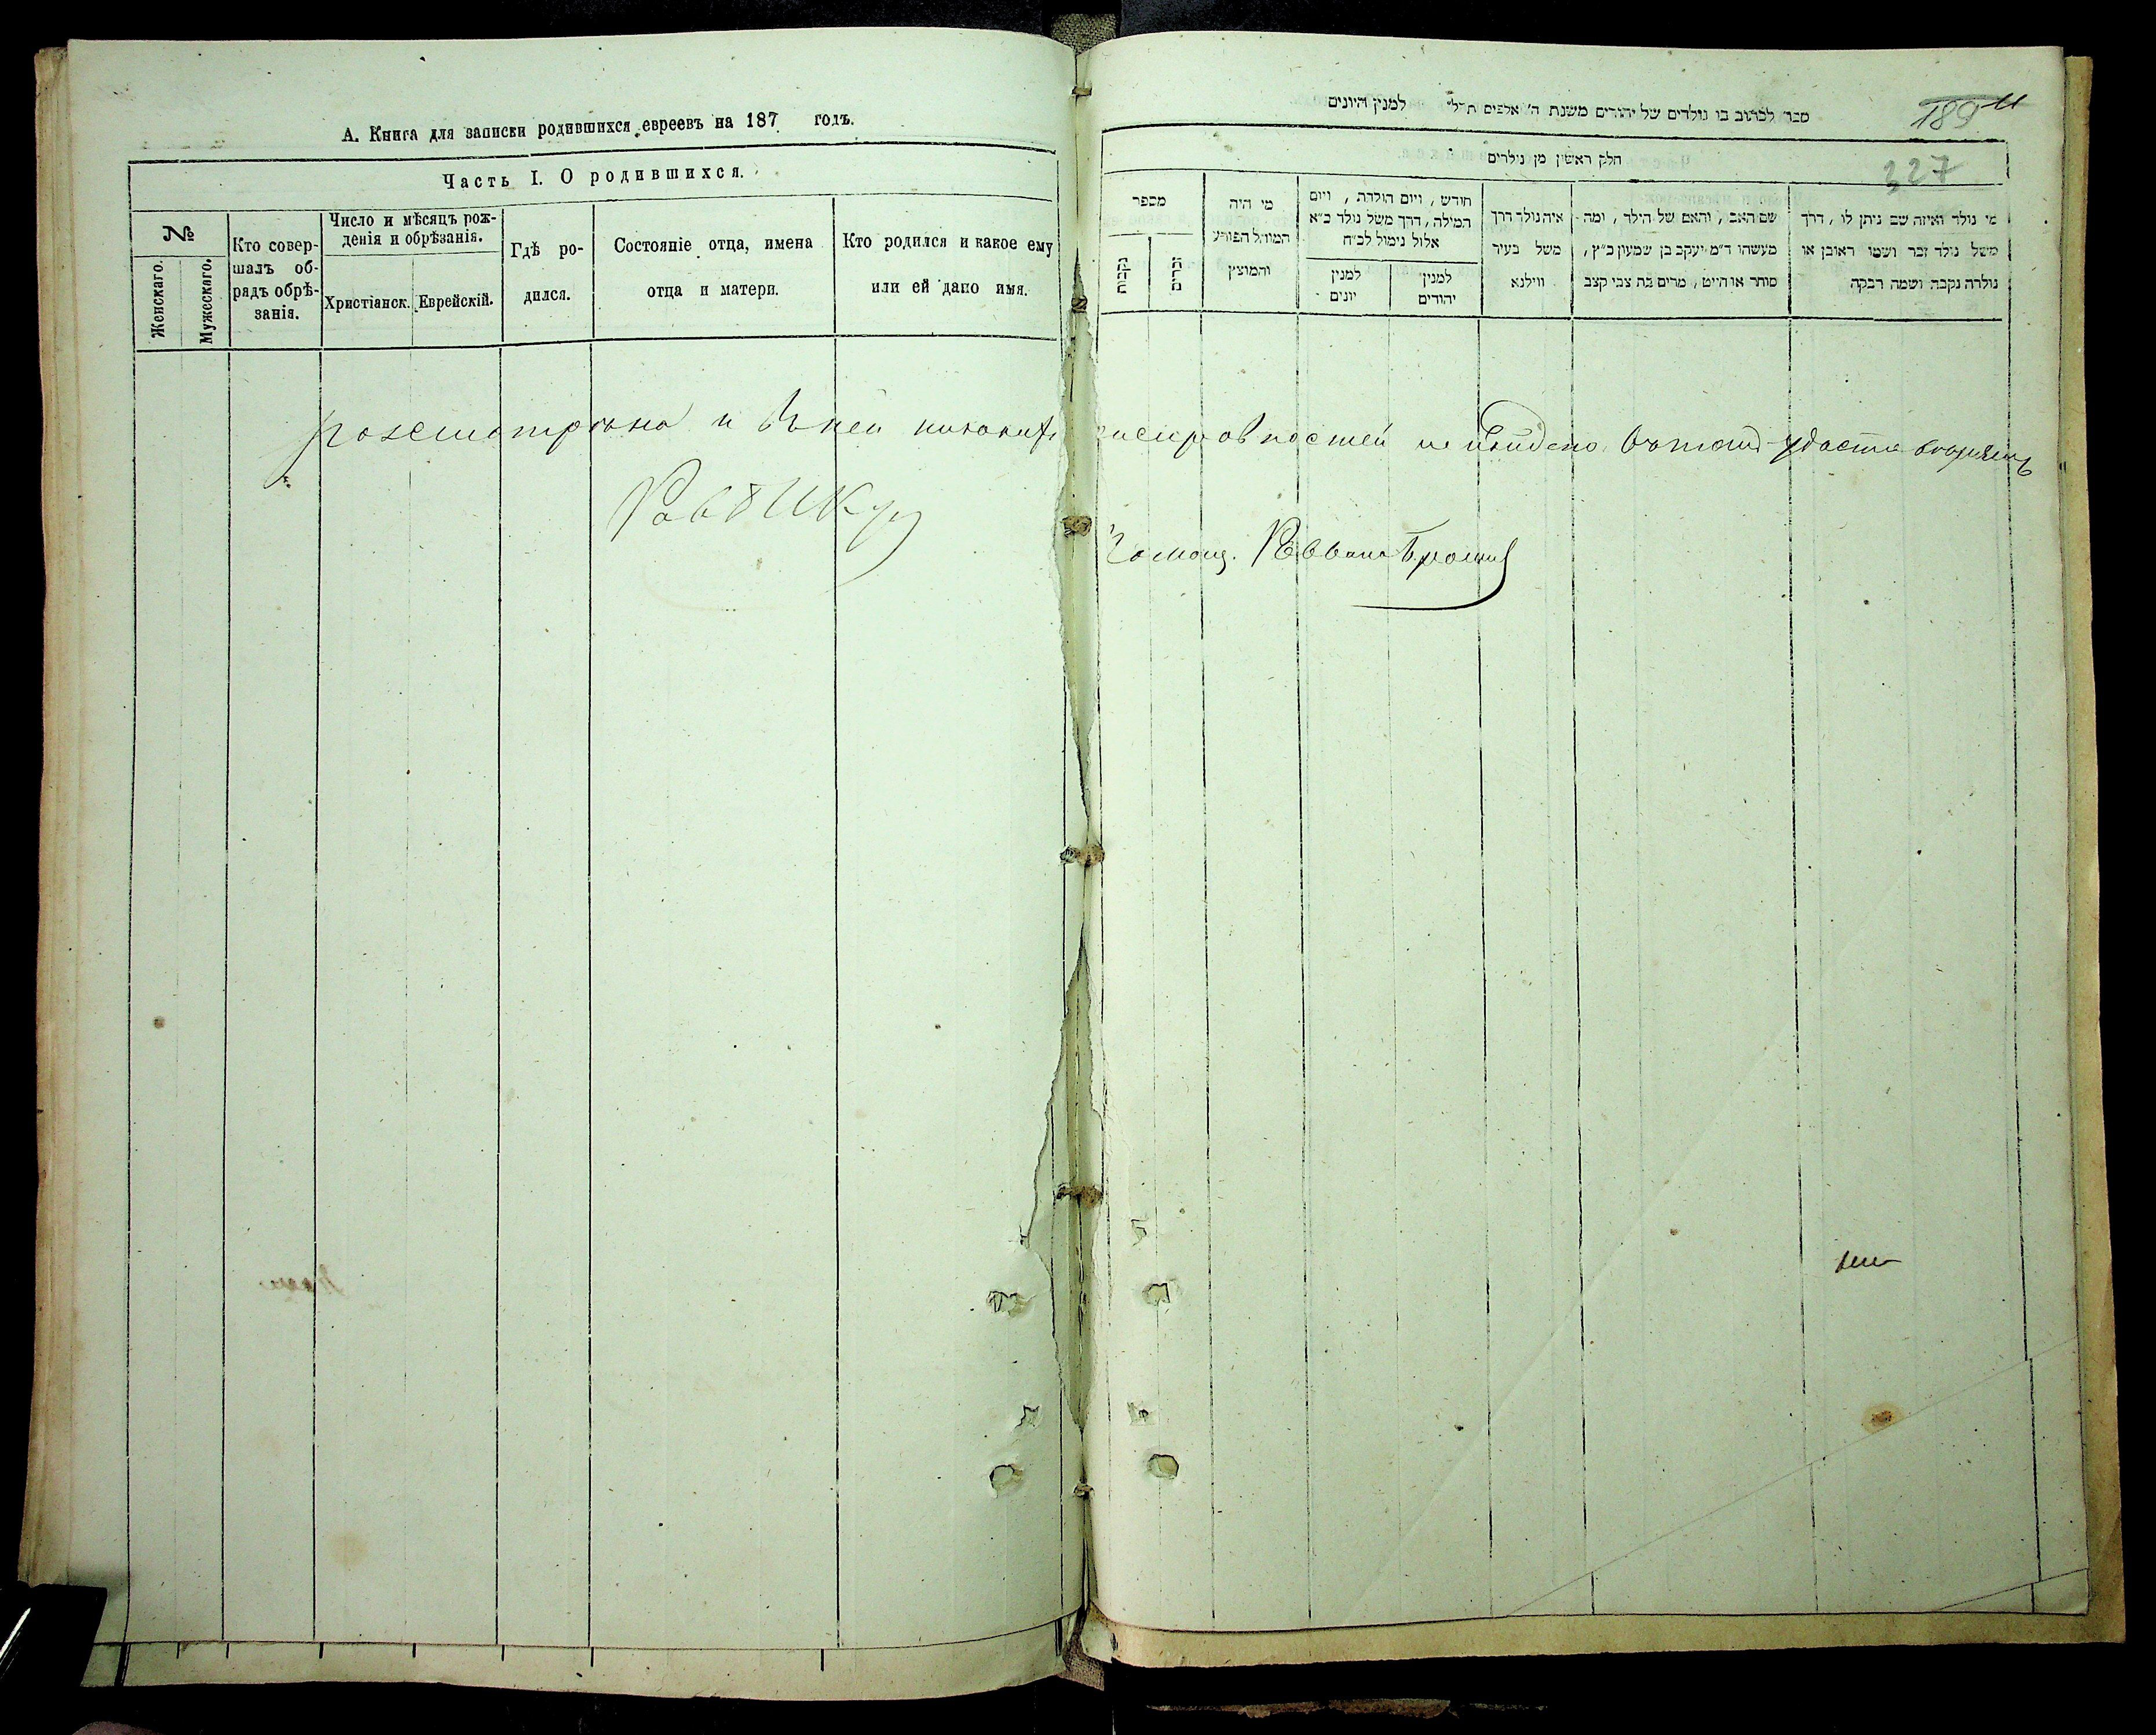 А. Книга для записки родившихся евреевъ на 187 годъ.
Часть I. О родившихся.
№
Женскаго.
Мужескаго.
Кто совер-
шалъ об-
рядъ обрѣ-
занія.
Число и мѣсяцъ рож-
денія и обрѣзанія.
Христіанск.
Еврейскій.
Гдѣ ро-
дился.
Состояніе отца, имена
отца и матери.
Кто родился и какое ему
или ей дано имя.
ספר לכתוב בו נולדים של יהודים משנת ה' אלפים תרל" למנין היונים
189
327
חלק ראשון מן נולדים
מספר
נקבות
זכרים
מי היה
המוהל הפורע
והמוצץ
חודש, ויום הולדת, ויום
המילה, דרך משל נולד כ"א
אלול נימול לכ"ח
למנין
יונים
למנין
יהודים
איה נולד דרך
משל בעיר
ווילנא
שם האב, והאם של הילד, ומה
מעשהו ד"מ יעקב בן שמעון כ"ץ,
סוחר או חייט, מרים בת צבי קצב
מי נולד ואיזה שם ניתן לו, דרך
משל נולד זכר ושמו ראובן או
נולדה נקבה ושמה רבקה
разсмотрѣна и въ ней никакихъ неисправностей не найдено, въ томъ удостовѣряемъ
Раввинъ
Помощ. Раввина